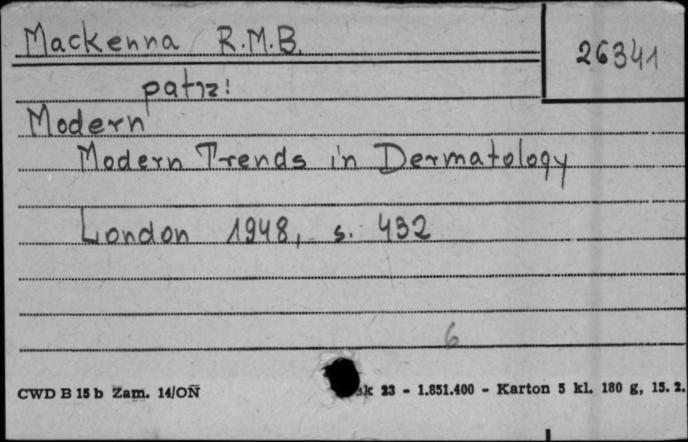 Mackenna R.M.B.
26341
patrz:
Modern
Modern Trends in Dermatology
London 1948, s. 432
6
CWD B 15 b Zam. 14/ON 23 - 1.851.400 - Karton 5 kl. 180 g, 15. 2.